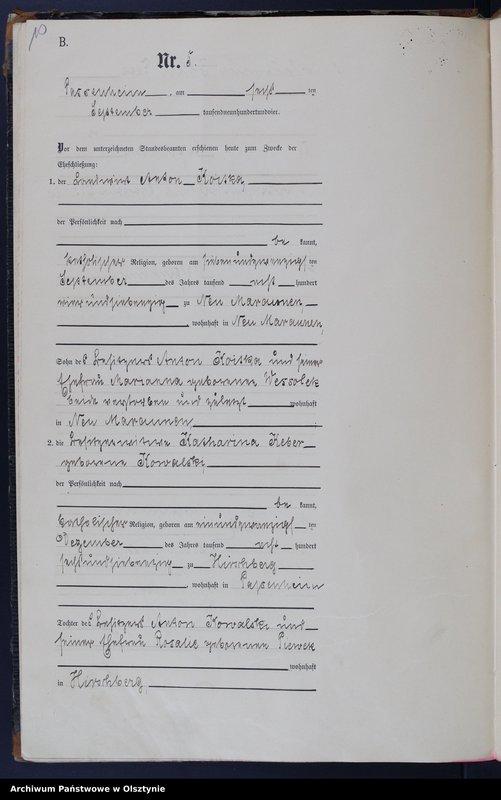 B.
Nr. 5.
Passenheim, am sechsten
September tausendneunhundertundvier.
Vor dem unterzeichneten Standesbeamten erschienen heute zum Zwecke der
Eheschließung:
1. der Landwirt Anton Koitka,
der Persönlichkeit nach
be kannt,
katholischer Religion, geboren am siebenundzwanzigsten
September des Jahres tausend acht hundert
vierundsiebenzig zu Neu Maraunen,
, wohnhaft in Neu Maraunen,
Sohn des Besitzers Anton Koitka und seiner
Ehefrau Marianna geborenen Wessolek
beide verstorben und zuletzt wohnhaft
in Neu Maraunen.
2. die Besitzerwitwe Katharina Keber
geborene Kowalski,
der Persönlichkeit nach
be kannt,
katholischer Religion, geboren am einundzwanzigsten
Dezember des Jahres tausend acht hundert
sechsundsiebenzig zu Hirschberg
, wohnhaft in Passenheim
Tochter des Besitzers Anton Kowalski und
seiner Ehefrau Rosalie geborenen
wohnhaft
in Hirschberg.
Archiwum Państwowe w Olsztynie